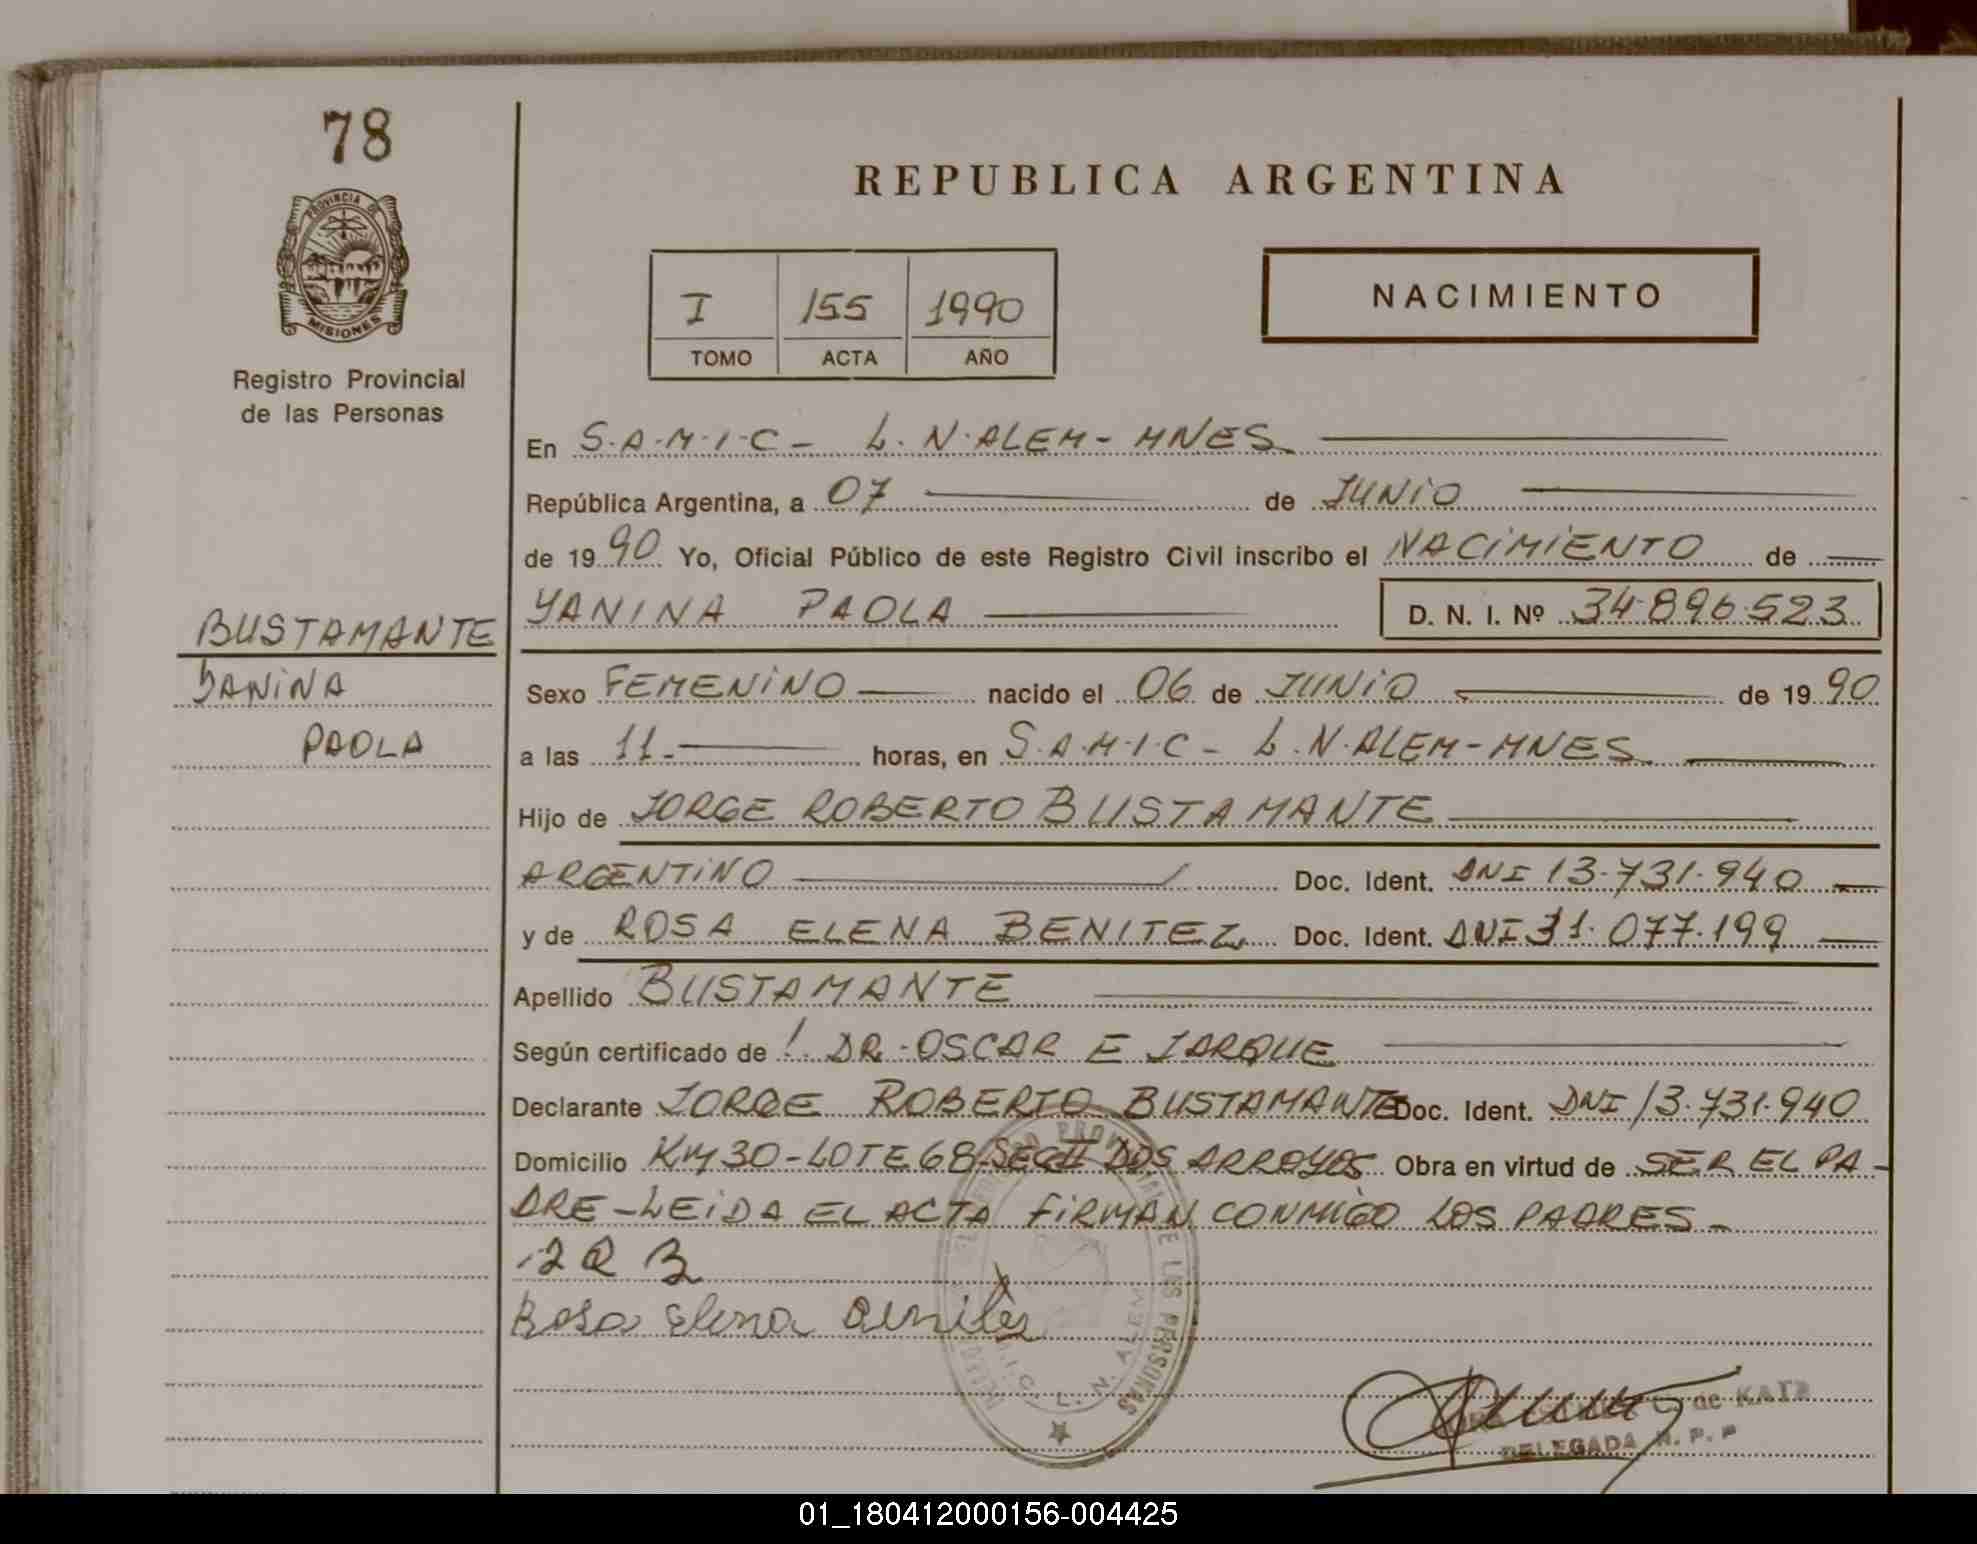 78
PROVINCIA DE
MISIONES
Registro Provincial
de las Personas
REPUBLICA ARGENTINA
I 155 1990
TOMO ACTA AÑO
NACIMIENTO
En S.A.M.I.C - L.N.ALEM - MNES
República Argentina, a 07 de JUNIO
de 1990 Yo, Oficial Público de este Registro Civil inscribo el NACIMIENTO de
YANINA PAOLA D. N. I. Nº 34.896.523
BUSTAMANTE
YANINA
PAOLA
Sexo FEMENINO nacido el 06 de JUNIO de 1990
a las 11.- horas, en S.A.M.I.C - L.N.ALEM - MNES
Hijo de JORGE ROBERTO BUSTAMANTE
ARGENTINO Doc. Ident. DNI 13.731.940
y de ROSA ELENA BENITEZ Doc. Ident. DNI 31.077.199
Apellido BUSTAMANTE
Según certificado de DR. OSCAR E JARQUE
Declarante JORGE ROBERTO BUSTAMANTE Doc. Ident. DNI 13.731.940
Domicilio KM 30 - LOTE 68 SECC II DOS ARROYOS Obra en virtud de SER EL PA-
DRE - LEIDA EL ACTA FIRMAN CONMIGO LOS PADRES -
Rosa Elena Benites
L. N. ALEM
C. de KATZ
DELEGADA R. P. P
01_180412000156-004425